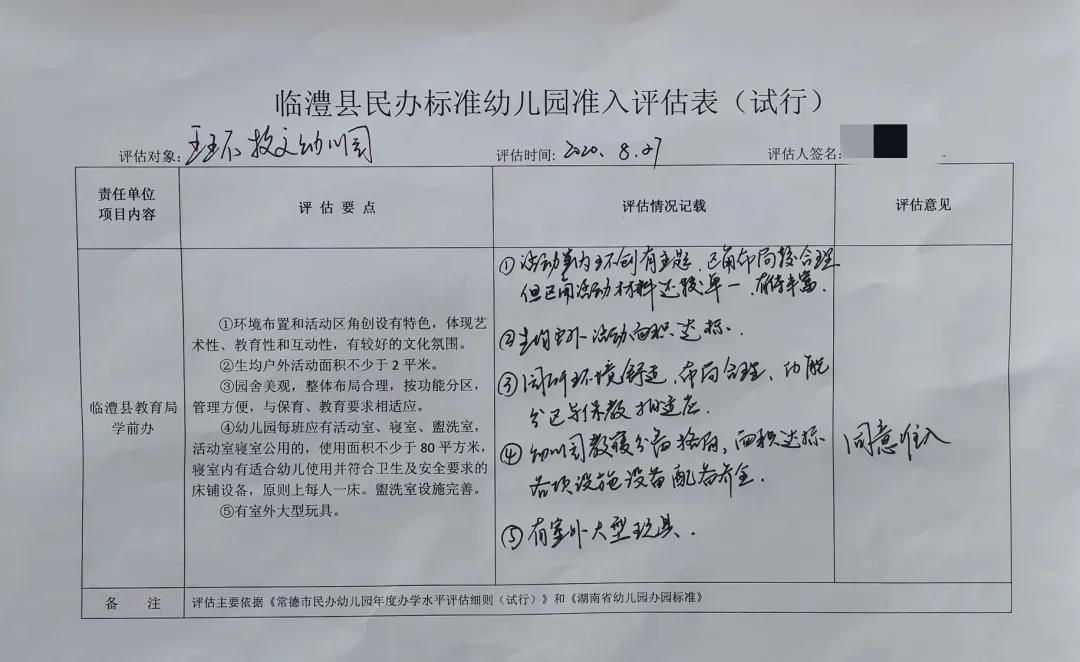 临澧县民办标准幼儿园准入评估表（试行）
评估对象：玉环接文幼儿园 评估时间：2020.8.27 评估人签名：
责任单位
项目内容
评估要点
评估情况记载
评估意见
临澧县教育局
学前办
①环境布置和活动区角创设有特色，体现艺
术性、教育性和互动性，有较好的文化氛围。
②生均户外活动面积不少于2平米。
③园舍美观，整体布局合理，按功能分区，
管理方便，与保育、教育要求相适应。
④幼儿园每班应有活动室、寝室、盥洗室，
活动室寝室公用的，使用面积不少于80平方米，
寝室内有适合幼儿使用并符合卫生及安全要求的
床铺设备，原则上每人一床。盥洗室设施完善。
⑤有室外大型玩具。
①活动室内环创有主题，区角布局较合理
但区角活动材料还较单一，有待丰富.
②生均室外活动面积达标.
③园所环境舒适，布局合理、功能
分区与保教相适应.
④幼儿园教寝分 ，面积达标
各项设施设备配备齐全.
⑤有室外大型玩具.
同意准入
备 注
评估主要依据《常德市民办幼儿园年度办学水平评估细则（试行）》和《湖南省幼儿园办园标准》